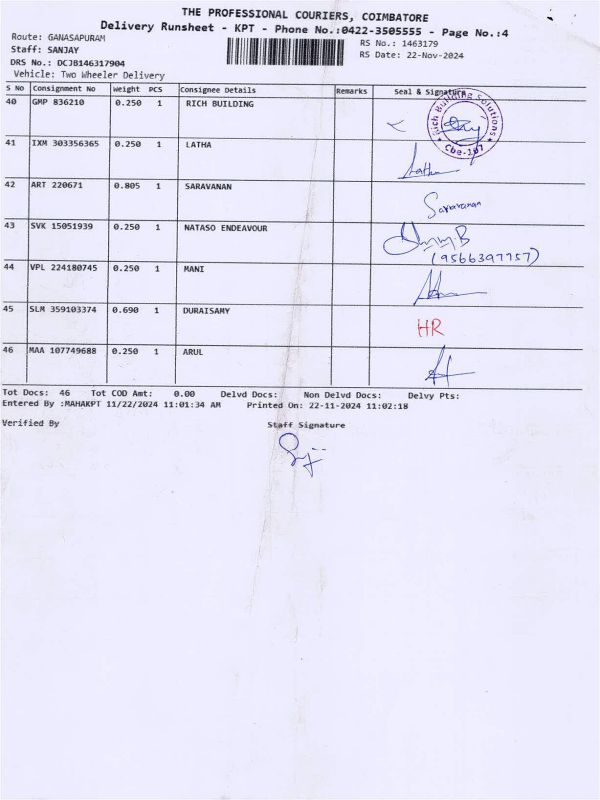 THE PROFESSIONAL COURIERS, COIMBATORE
Delivery Runsheet - KPT - Phone No.:0422-3505555 - Page No.:4
Route: GANASAPURAM RS No.: 1463179
Staff: SANJAY RS Date: 22-Nov-2024
DRS No.: DCJB146317904
Vehicle: Two Wheeler Delivery
S No Consignment No Weight PCS Consignee Details Remarks Seal & Signature
40 GMP 836210 0.250 1 RICH BUILDING Rich Building Solutions Cbe-107
41 IXM 303356365 0.250 1 LATHA Latha
42 ART 220671 0.805 1 SARAVANAN Saravanan
43 SVK 15051939 0.250 1 NATASO ENDEAVOUR
(9566397757)
44 VPL 224180745 0.250 1 MANI
45 SLM 359103374 0.690 1 DURAISAMY HR
46 MAA 107749688 0.250 1 ARUL
Tot Docs: 46 Tot COD Amt: 0.00 Delvd Docs: Non Delvd Docs: Delvy Pts:
Entered By :MAHAKPT 11/22/2024 11:01:34 AM Printed On: 22-11-2024 11:02:18
Verified By Staff Signature